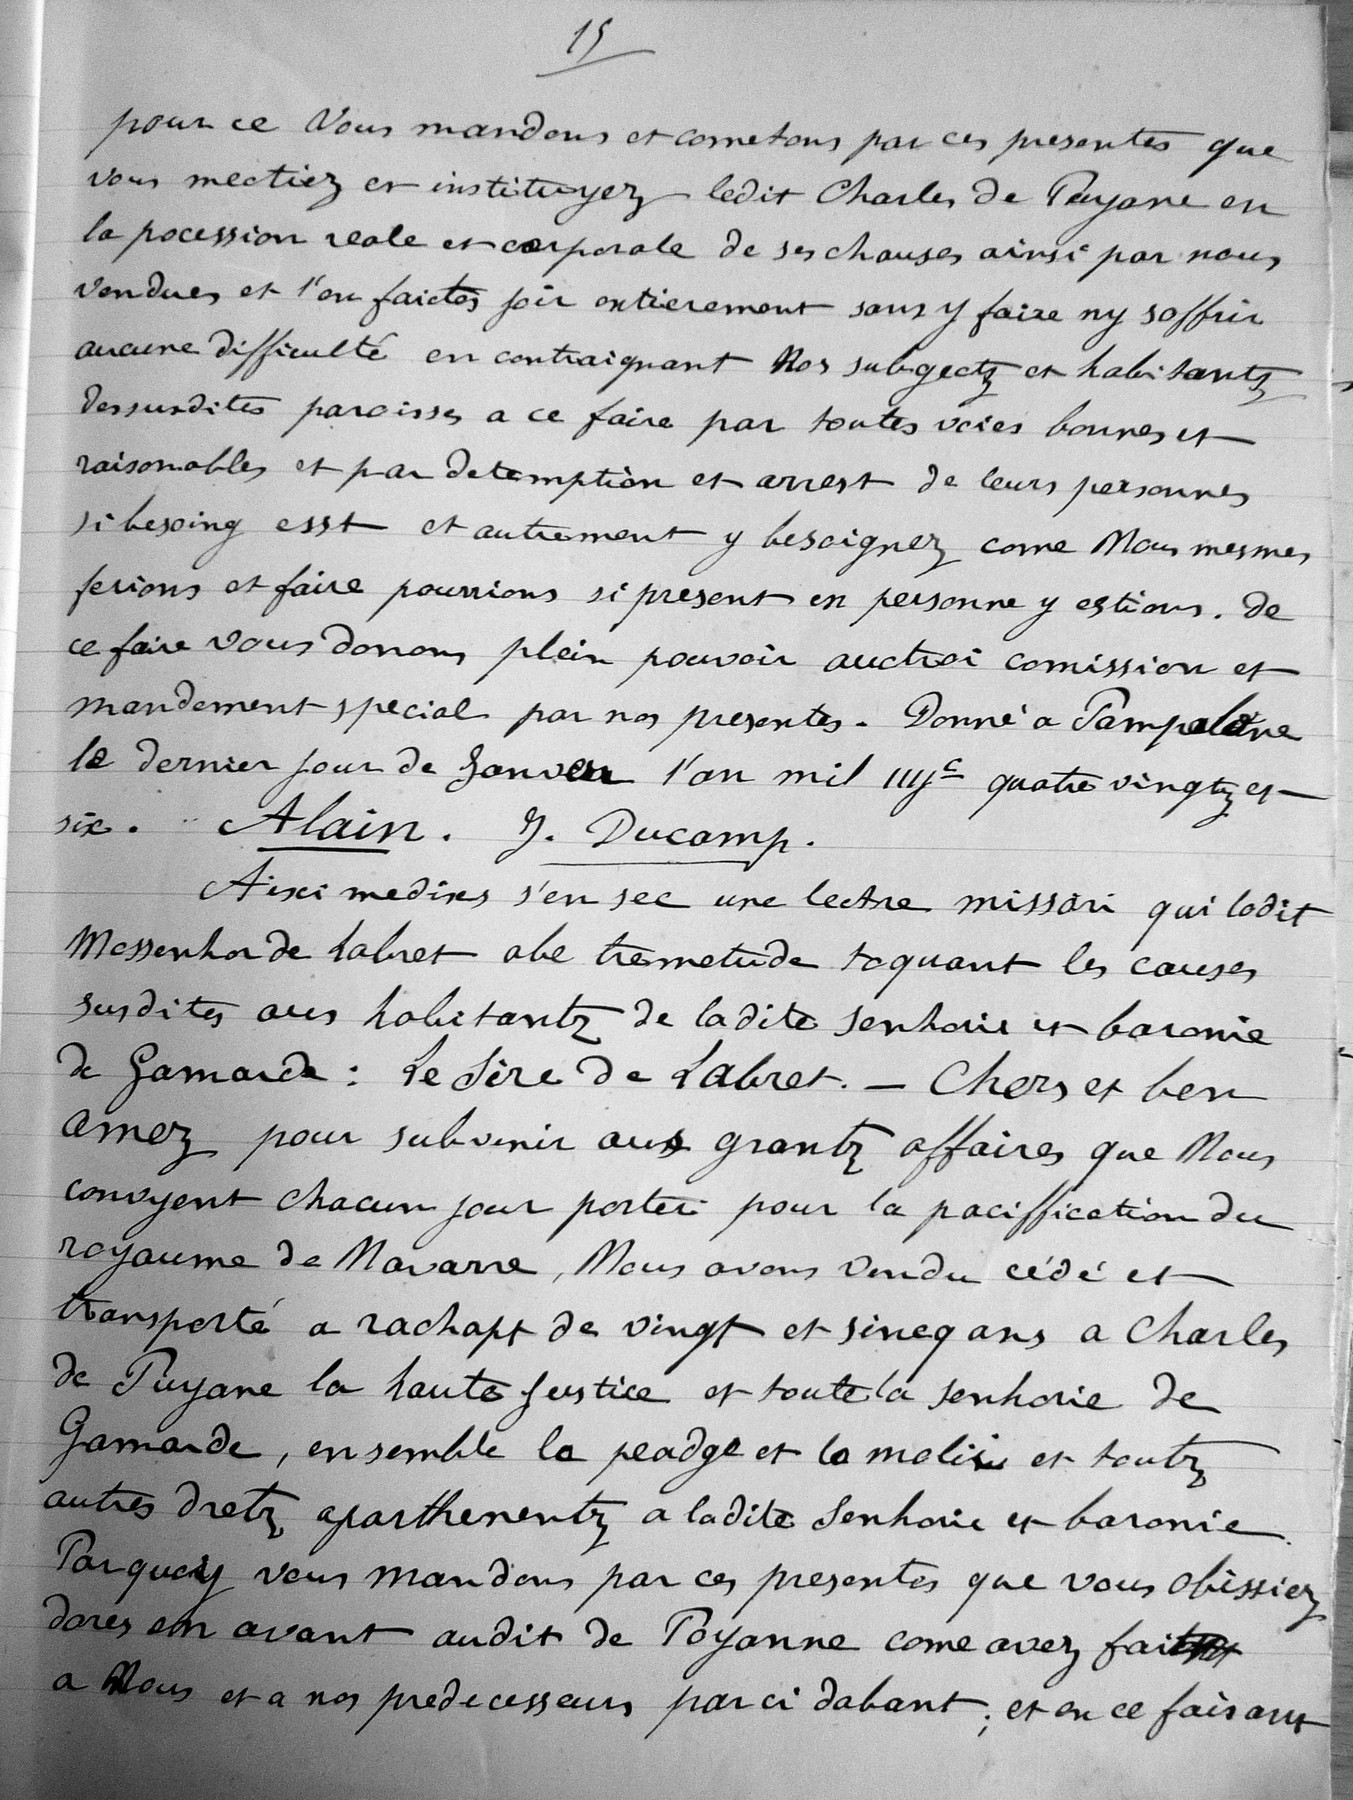 15
pour ce Vous mandons et cometons par ces presentes que
vous mectiez et instituyez ledit Charles de Puyane en
la pocession reale et corporale de ses chauses ainsi par nous
vendues et l'en faictes joir entierement sans y faire ny soffrir
aucune difficulté en contraignant Nos subgectz et habitantz
dessusdites paroisses a ce faire par toutes voies bonnes et
raisonables et par detemption et arrest de leurs personnes
si besoing esst et autrement y besoignez come Nous mesmes
ferions et faire pourrions si present en personne y estions. De
ce faire vous donons plein pouvoir auctroi comission et
mandement special par nos presentes. Donné a Pampelone
le dernier jour de Janver l'an mil IIIJc quatre vingtz et
six. Alain. J. Ducamp.
Aixi medixs s'en sec une lectre missori qui lodit
Mossenhor de Labret abe tremetude toquant les causes
susdites aux habitantz de ladite senhorie et baronie
de Gamarde : Le Sire de Labret. — Chers et ben
amez pour subvenir aux grantz affaires que Nous
convyent chacun jour porter pour la paciffication du
royaume de Navarre, Nous avons vendu cédé et
transporté a rachapt de vingt et sincq ans a Charles
de Puyane la haute Justice et toute la senhorie de
Gamarde, ensemble la peadge et lo molin et toutz
autres dretz aparthenentz a ladite Senhorie et baronie.
Parquoy vous mandons par ces presentes que vous obissiez
dores en avant audit de Poyanne come avez fait
a Nous et a nos predecesseurs par ci dabant ; et en ce faisant